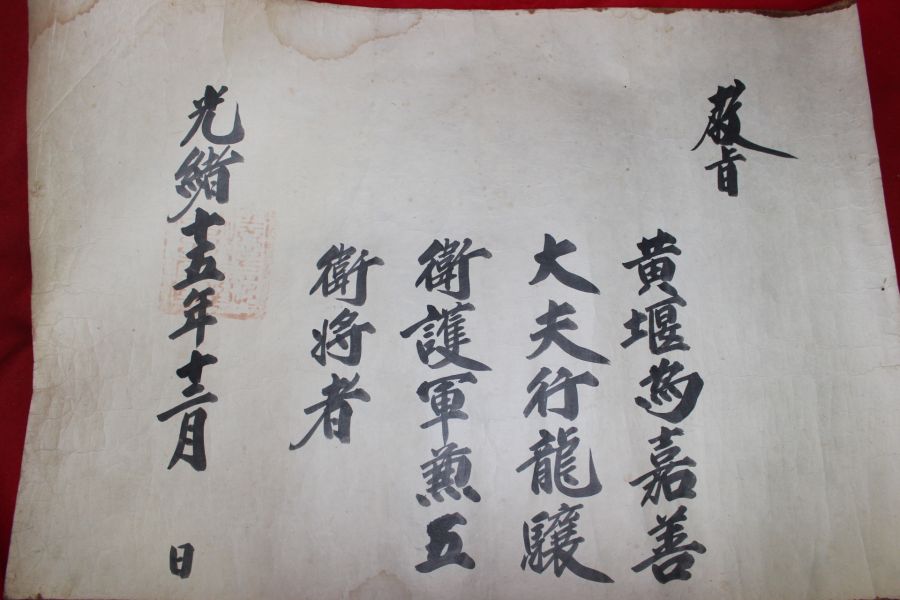 教旨
黄堰為嘉善
大夫行龍驤
衛護軍兼五
衛將者
光緒十五年十二月 日